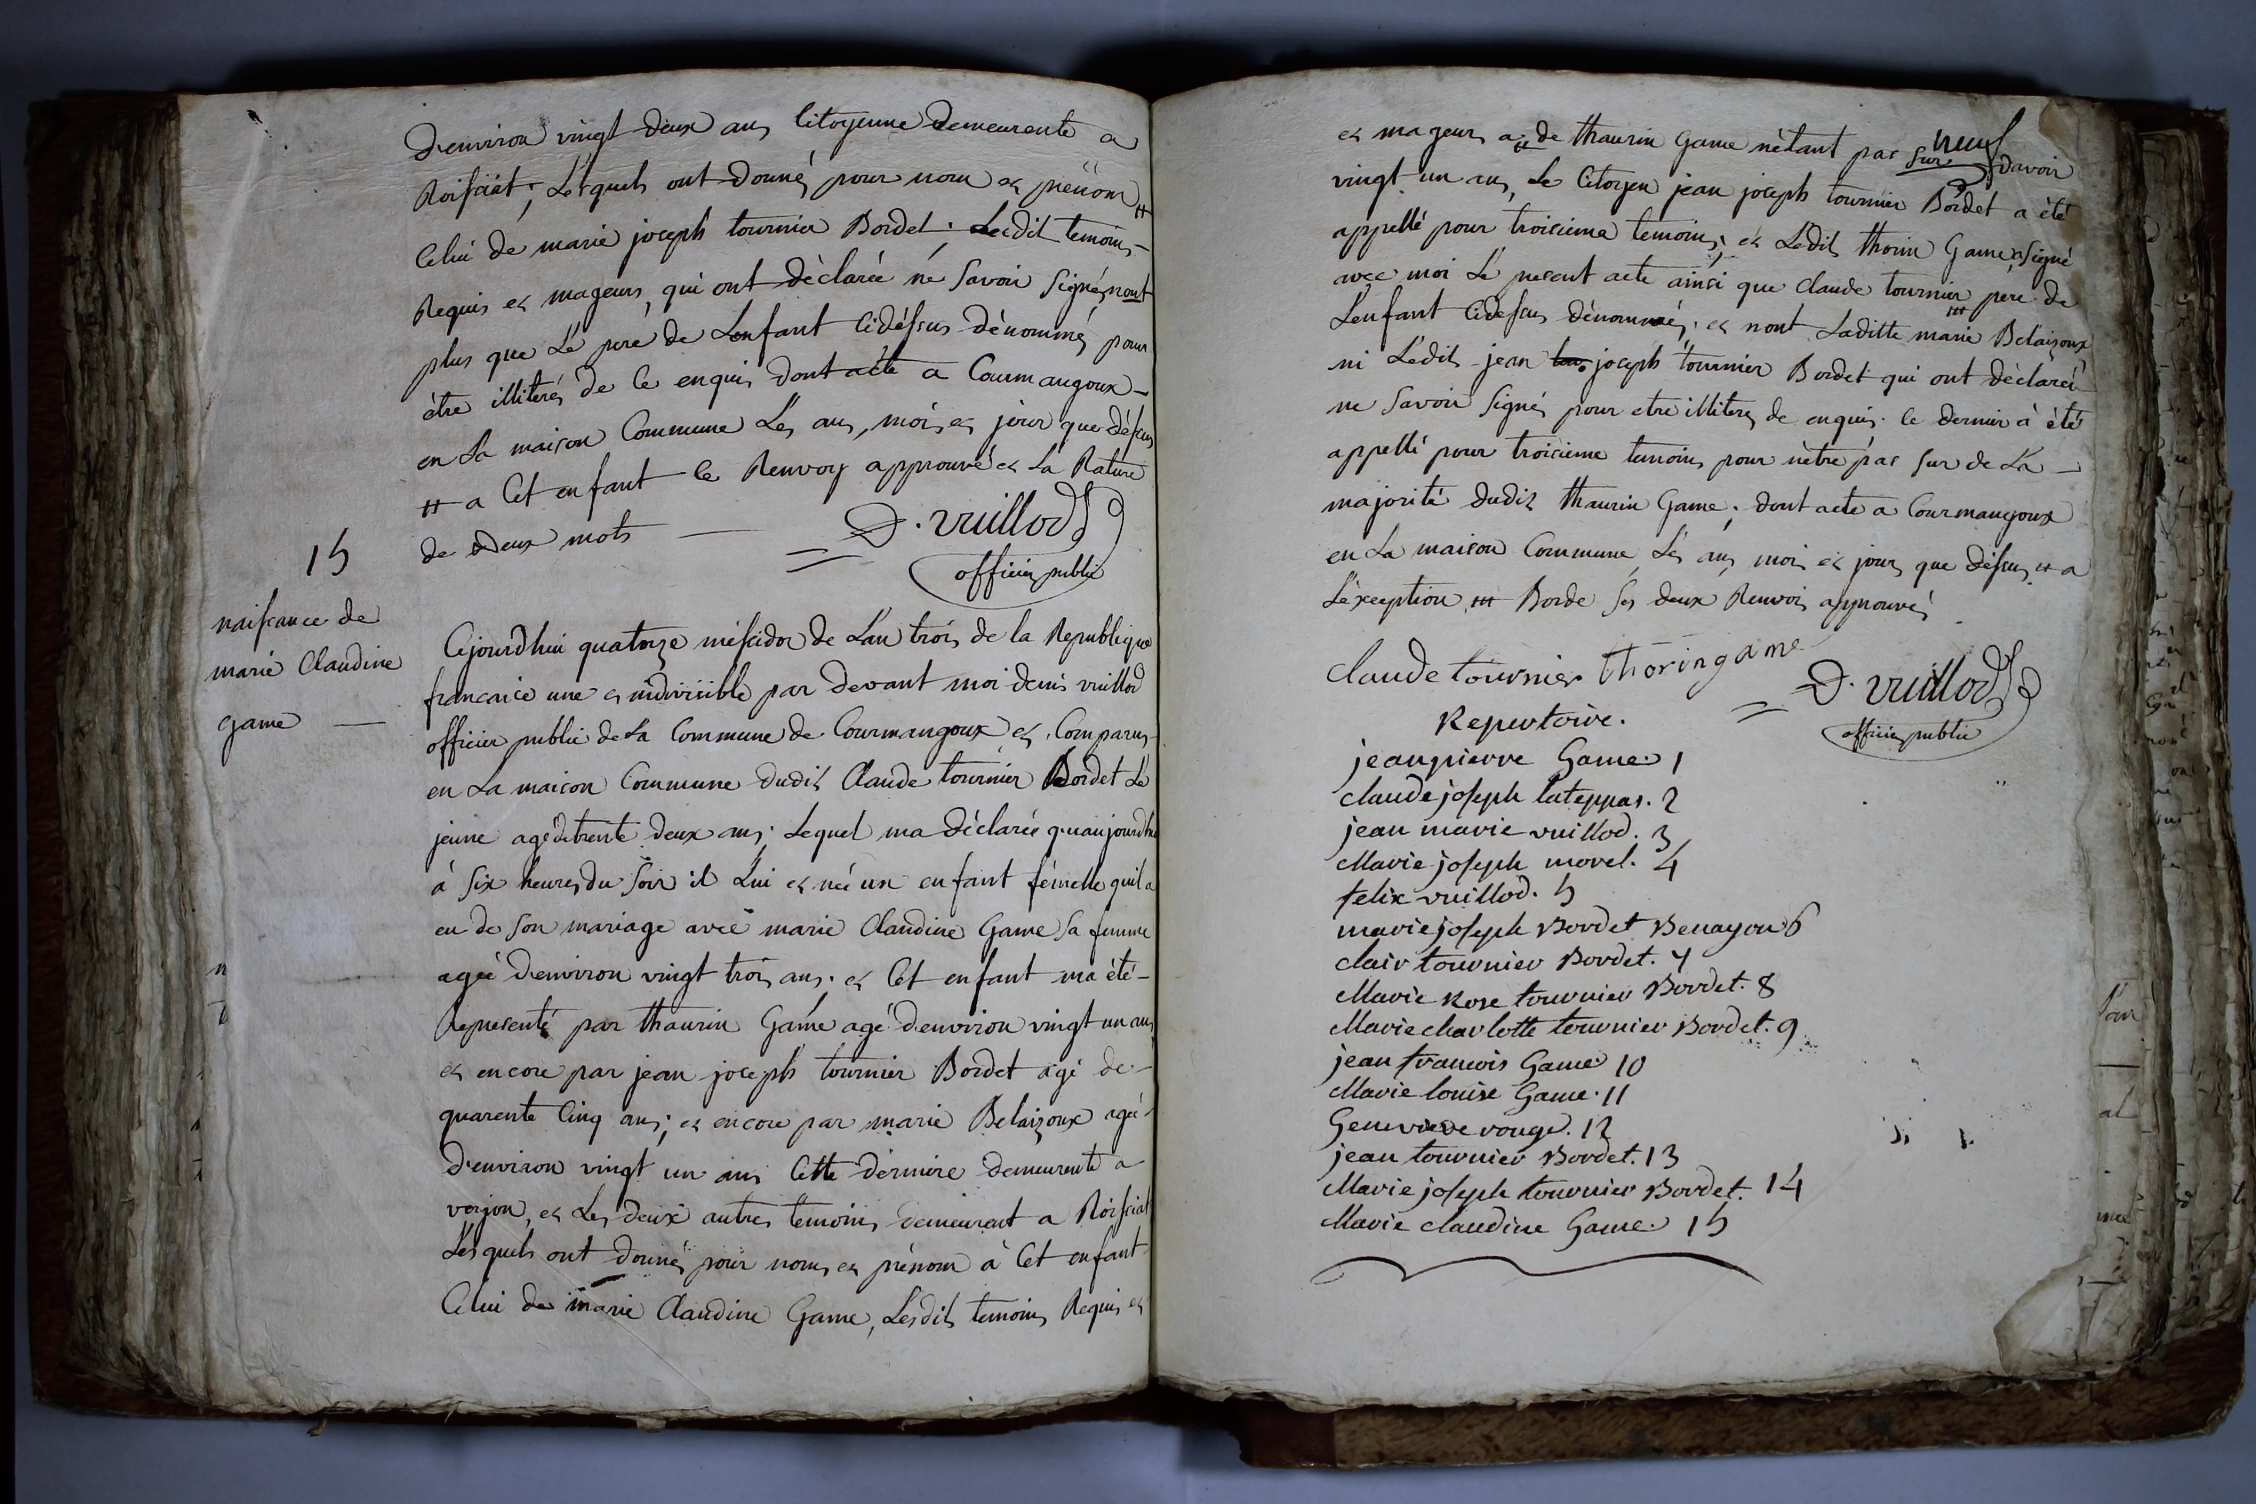 D'environ vingt deux ans Citoyenne demeurente a
Roissiat; Lesquels ont donnés pour nom et prénom #
Celui de marie joseph tournier Bordet; Lesdit temoins
Requis et mageurs, qui ont déclarée ne Savoir Signé, nont
plus que Le pere de Lenfant Cidéssus dénommé, pour
étre illiterés de Ce enquis dont acte a Courmangoux
en La maison Commune Les ans, mois et jour que déssus
# a Cet enfant Ce Renvoy approuvé et La Rature
de Deux mots
D. vuillod
officier public
15
naissance de
marie Claudine
game
Cejourdhui quatorze messidor de L'an trois de la Republique
francaice une et indivisible par devant moi denis vuillod
officier public de La Commune de Courmangoux et Comparus
en La maison Commune dudit Claude tournier Bordet Le
jeune agé de trente deux ans; Lequel ma déclarée qu'aujourdhui
à Six heures du Soir il Lui et née un enfant femelle quil a
eu de Son mariage avec marie Claudine Game Sa femme
agée d'environ vingt trois ans; et Cet enfant ma été
Representé par thaurin Game agé d'environ vingt un ans
et encore par jean joseph tournier Bordet agé de
quarente Cinq ans; et encore par marie Belaizoux agée
d'environ vingt un ans Cette derniere demeurente a
verjon, et Les deux autres temoins demeurent a Roissiat
Lesquels ont donnés pour noms et prénom à Cet enfant
Celui de marie Claudine Game, Lesdits temoins Requis et
et mageurs a # de thaurin Game nétant pas Sur neuf davoir
vingt un ans, Le Citoyen jean joseph tournier Bordet a été
appellé pour troicieme temoins; et Ledit thorin Game a Signé
avec moi Le present acte ainsi que Claude tournier pere de
L'enfant Cidessus dénommés; et nont Laditte marie Belaizoux
ni Ledit jean joseph tournier Bordet qui ont déclarée
ne Savoir Signés pour etre illiteres de enquis. Ce dernier à été
appellé pour troicieme temoins pour nétre pas Sur de La
majorité dudit thaurin Game; dont acte a Courmangoux
en La maison Commune, Les ans, mois et jours que déssus # a
L'exception ## Borde Ses deux Renvois approuvés
Claude tournier thoringame
D. vuillod
officier public
Repertoire.
jean pierre Game. 1
claude joseph lateppas. 2
jean marie vuillod. 3
Marie joseph morel. 4
felix vuillod. 5
marie joseph Bordet Benayou 6
clair tournier Bordet. 7
Marie Rose tournier Bordet. 8
Marie charlotte tournier Bordet. 9
jean francois Game 10
Marie louise Game. 11
Genevieve rouge. 12
jean tournier Bordet. 13
Marie joseph tournier Bordet. 14
Marie claudine Game. 15